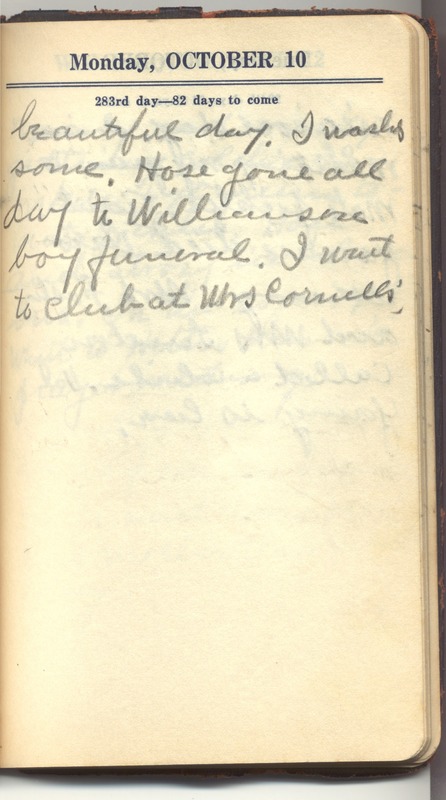 Monday, OCTOBER 10
283rd day—82 days to come
beautiful day. I washed
some. Hose gone all
day to Williamson
boy funeral. I went
to club at Mrs Cornells'.